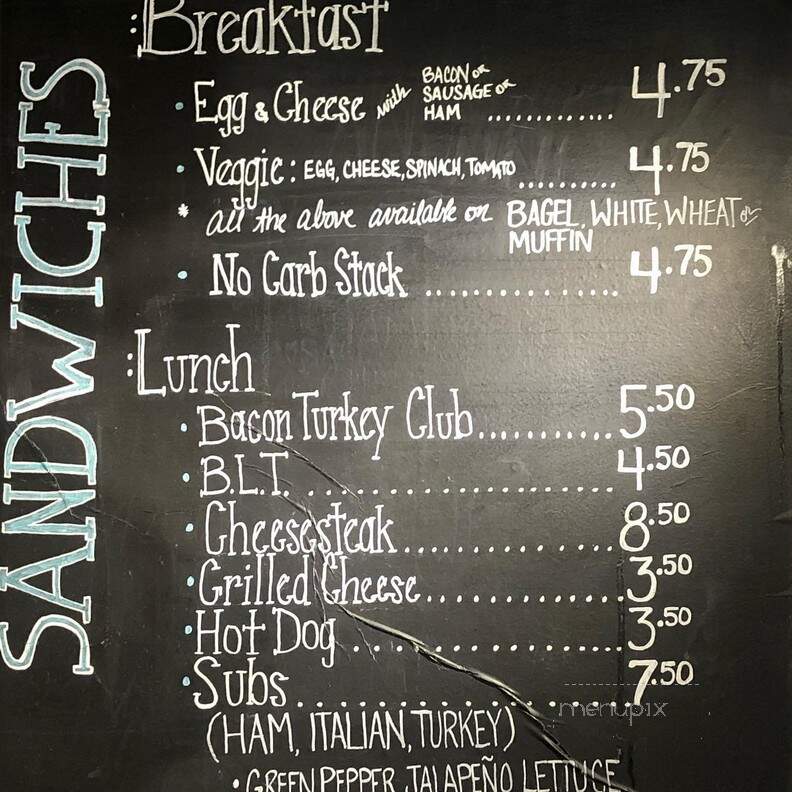 SANDWICHES
:Breakfast
• Egg & Cheese with BACON or SAUSAGE or HAM ............. 4.75
• Veggie: EGG, CHEESE, SPINACH, TOMATO .......... 4.75
* all the above available on BAGEL, WHITE, WHEAT or
MUFFIN
• No Carb Stack .............. 4.75
:Lunch
• Bacon Turkey Club........... 5.50
• B.L.T. ...................... 4.50
• Cheesesteak................ 8.50
• Grilled Cheese.............. 3.50
• Hot Dog .................. 3.50
• Subs.................... 7.50
menupix
(HAM, ITALIAN, TURKEY)
• GREEN PEPPER, JALAPEÑO LETTUCE